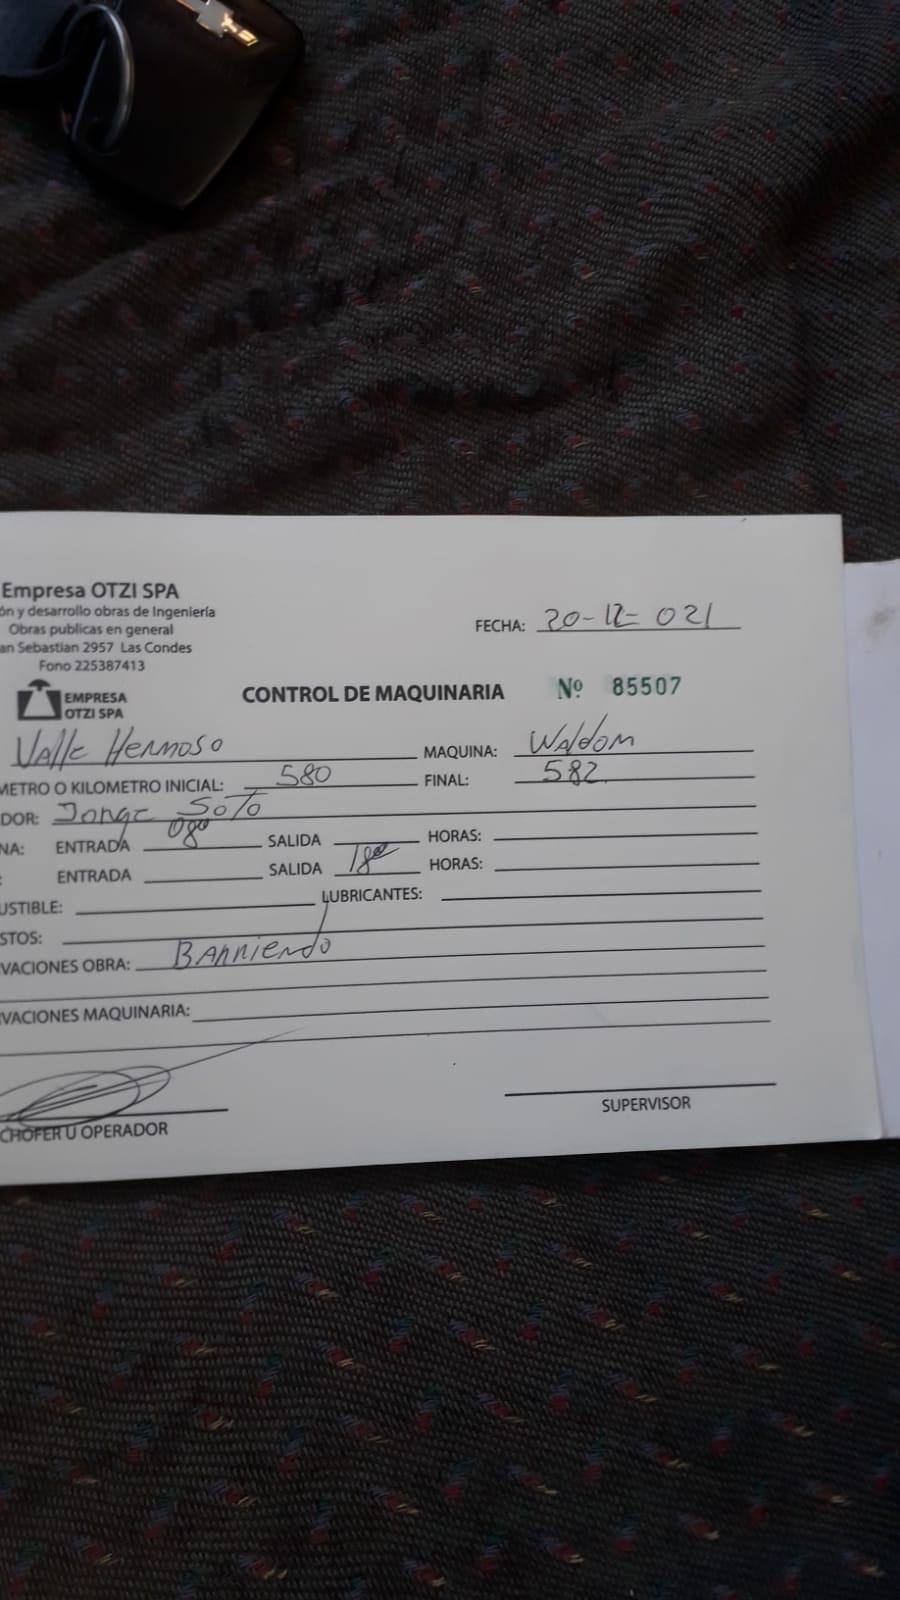 Empresa OTZI SPA
ón y desarrollo obras de Ingeniería
Obras publicas en general
an Sebastian 2957 Las Condes
Fono 225387413
FECHA: 20-12-021
EMPRESA
OTZI SPA
CONTROL DE MAQUINARIA Nº 85507
Valle Hermoso MAQUINA: Waldom
METRO O KILOMETRO INICIAL: 580 FINAL: 582
DOR: Jorge Soto
NA: ENTRADA 08⁰⁰ SALIDA HORAS:
: ENTRADA SALIDA 18⁰⁰ HORAS:
USTIBLE: LUBRICANTES:
STOS:
VACIONES OBRA: Barriendo
VACIONES MAQUINARIA:
CHOFER U OPERADOR
SUPERVISOR